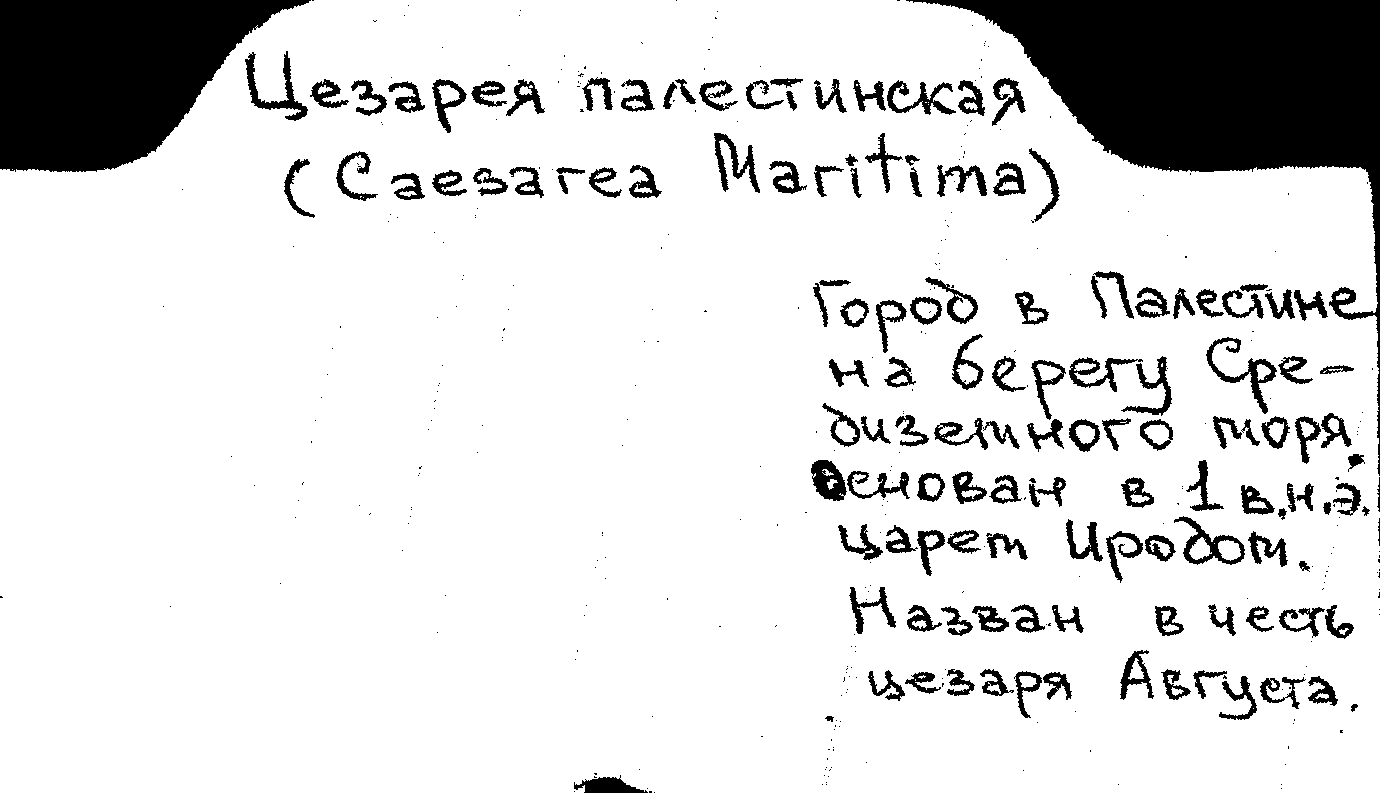 Цезарея палестинская
(Caesarea Maritima)
Город в Палестине
на берегу Сре-
диземного моря.
Основан в 1 в.н.э.
царем Иродом.
Назван в честь
цезаря Августа.